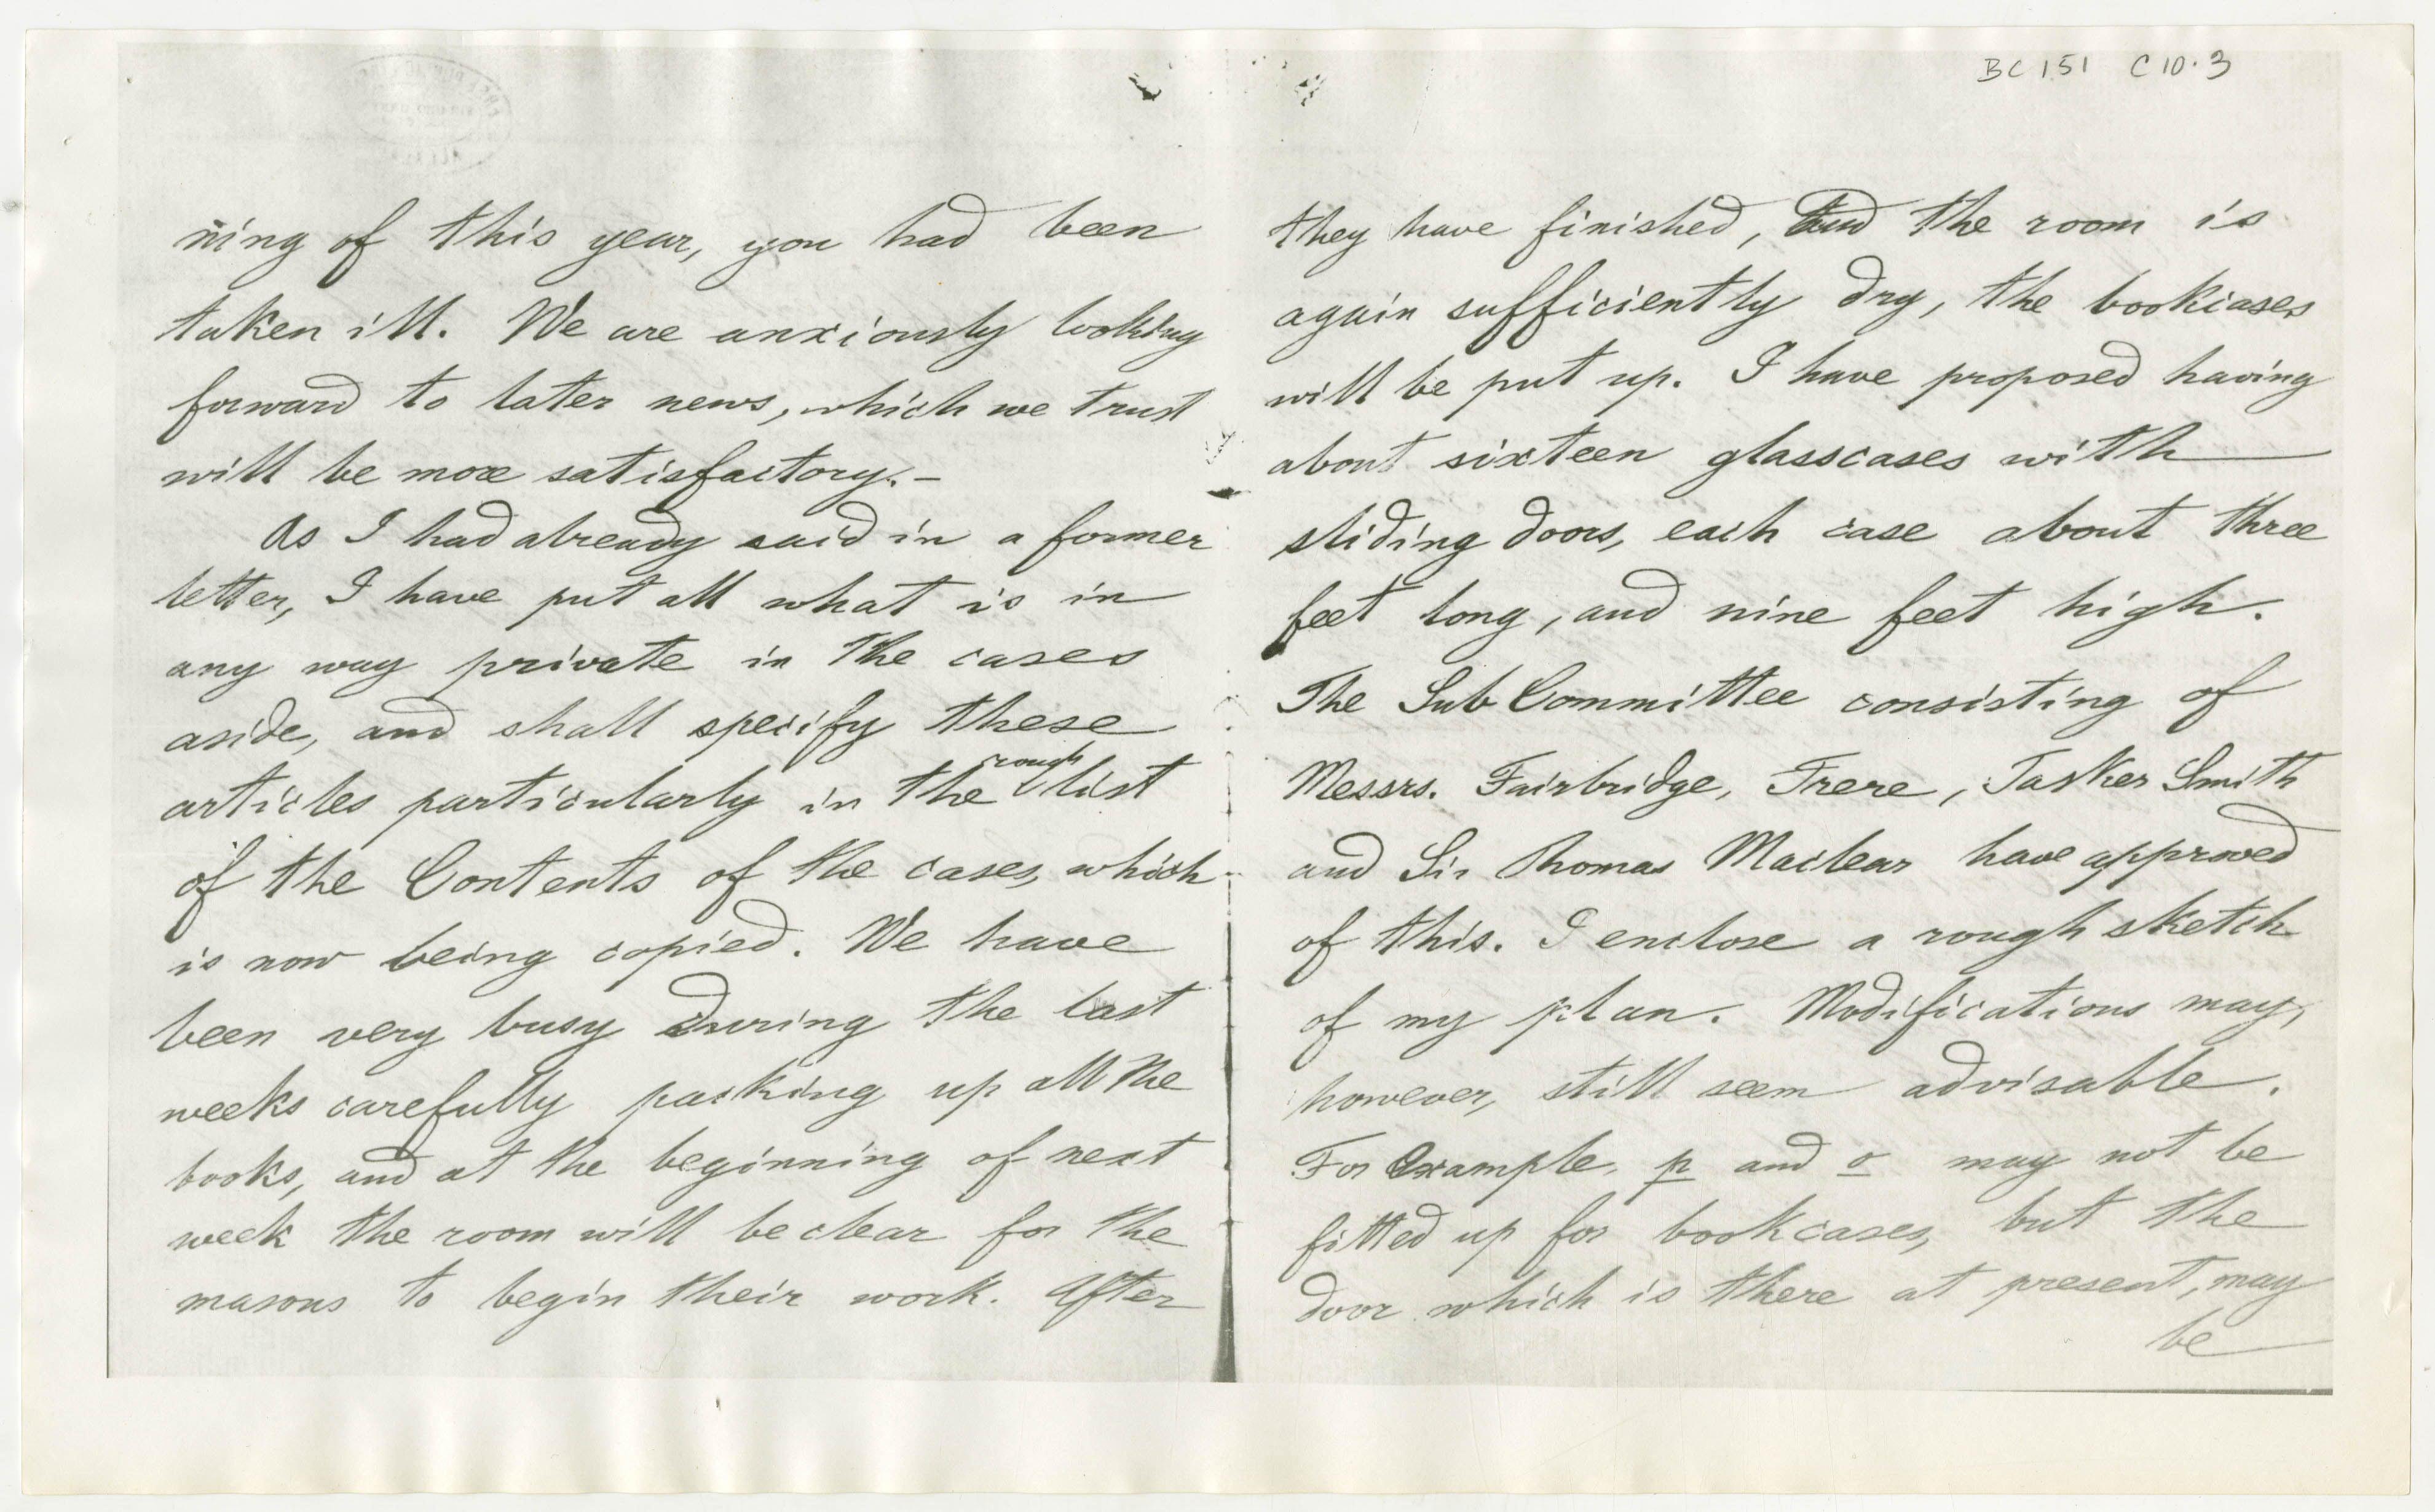 BC 151 C10.3
ning of this year, you had been
taken ill. We are anxiously looking
forward to later news, which we trust
will be more satisfactory. -
As I had already said in a former
letter, I have put all what is in
any way private in the cases
aside, and shall specify these
articles particularly in the rough list
of the Contents of the cases, which
is now being copied. We have
been very busy during the last
weeks carefully packing up all the
books, and at the beginning of next
week the room will be clear for the
masons to begin their work. After
they have finished, and the room is
again sufficiently dry, the bookcases
will be put up. I have proposed having
about sixteen glasscases with
sliding doors, each case about three
feet long, and nine feet high.
The Sub Committee consisting of
Messrs. Fairbridge, Frere, Tasker Smith
and Sir Thomas Maclear have approved
of this. I enclose a rough sketch
of my plan. Modifications may,
however, still seem advisable.
For Example, p and o may not be
fitted up for bookcases, but the
door which is there at present, may
be